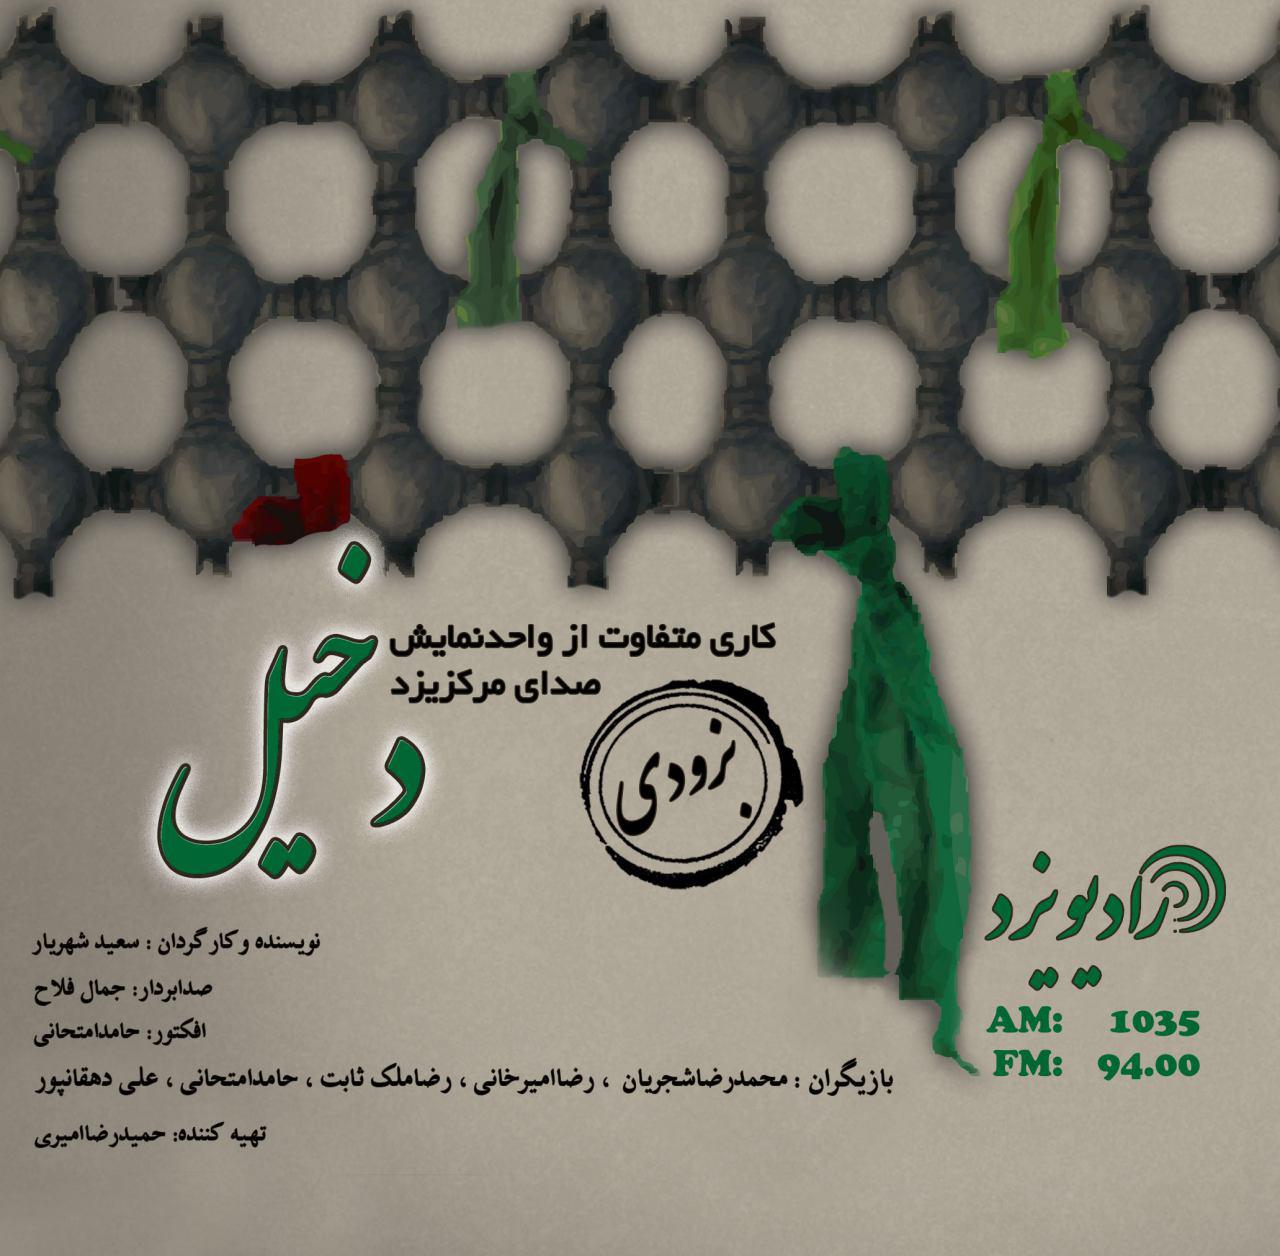 کاری متفاوت از واحدنمایش
صدای مرکزیزد
دخیل
بزودی
رادیو یزد
AM: 1035
FM: 94.00
نویسنده و کارگردان : سعید شهریار
صدابردار: جمال فلاح
افکتور: حامدامتحانی
بازیگران : محمدرضاشجریان ، رضاامیرخانی ، رضاملک ثابت ، حامدامتحانی ، علی دهقانپور
تهیه کننده: حمیدرضاامیری